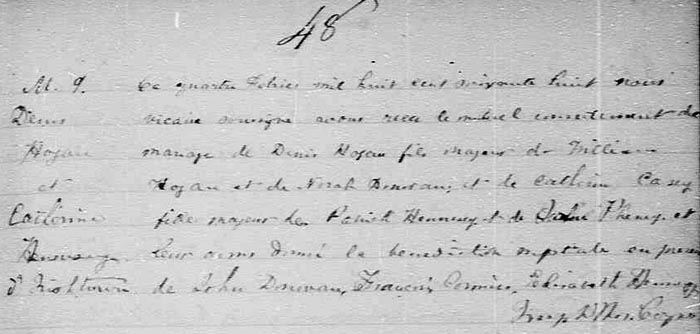 48
M. 9. Ce quatre Février mil huit cent soixante huit nous
Denis vicaire soussigné avons recu le mutuel consentement de
Hogan mariage de Denis Hogan fils majeur de William
et Hogan et de Norah Donovan, et de Catherine Casey
Catherine fille majeur de Patrick Hennessy et de et
Hennessy leur avons donné la bénédiction nuptiale en
d'Irishtown de John Donovan, François Cormier, Elizabeth
Ths. Coyne